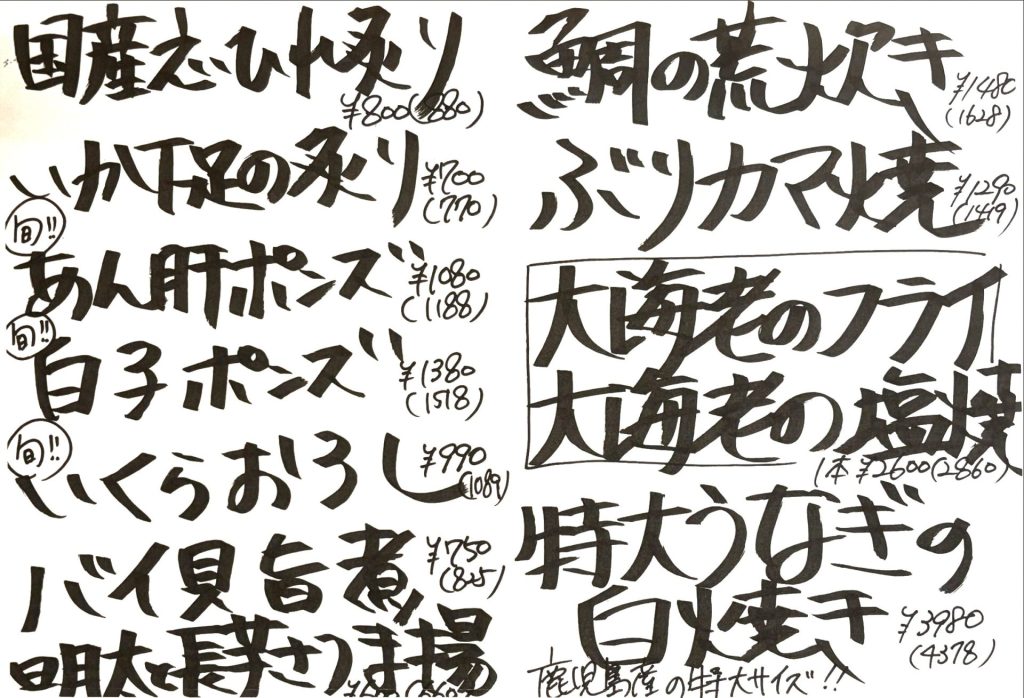 国産えいひれ炙り
¥800(880)
いか下足の炙り
¥700
(770)
旬!!
あん肝ポンズ
¥1080
(1188)
旬!!
白子ポンズ
¥1380
(1518)
旬!!
いくらおろし
¥990
(1089)
バイ貝旨煮
¥750
(825)
明太と長芋さつま揚
鯛の荒炊き
¥1480
(1628)
ぶりカマ焼
¥1290
(1419)
大海老のフライ
大海老の塩焼
1本 ¥2600(2860)
特大うなぎの
白焼き
¥3980
(4378)
鹿児島産の特大サイズ!!